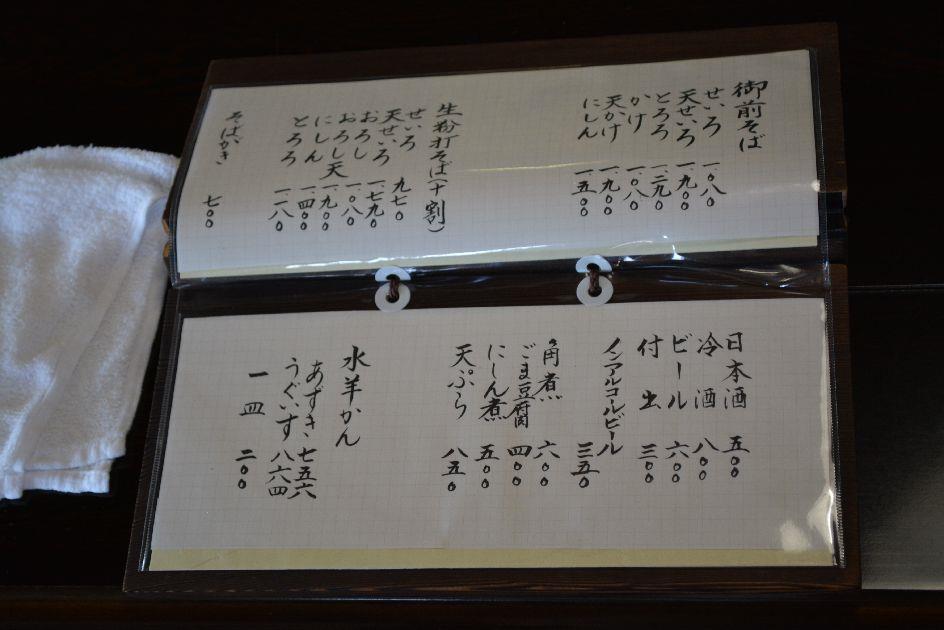 御前そば
せいろ 一.〇八〇
天せいろ 一.九〇〇
とろろ 一.二九〇
かけ 一.〇八〇
天かけ 一.九〇〇
にしん 一五〇〇
生粉打そば(十割)
せいろ 九七〇
天せいろ 一.七九〇
おろし 一.〇八〇
おろし天 一.九〇〇
にしん 一.四〇〇
とろろ 一.一八〇
そばがき 七〇〇
日本酒 五〇〇
冷酒 八〇〇
ビール 六〇〇
付出 三〇〇
ノンアルコールビール 三五〇
角煮 六〇〇
ごま豆腐 四〇〇
にしん煮 五〇〇
天ぷら 八五〇
水羊かん
あずき、七五六
うぐいす 八六四
一皿 二〇〇